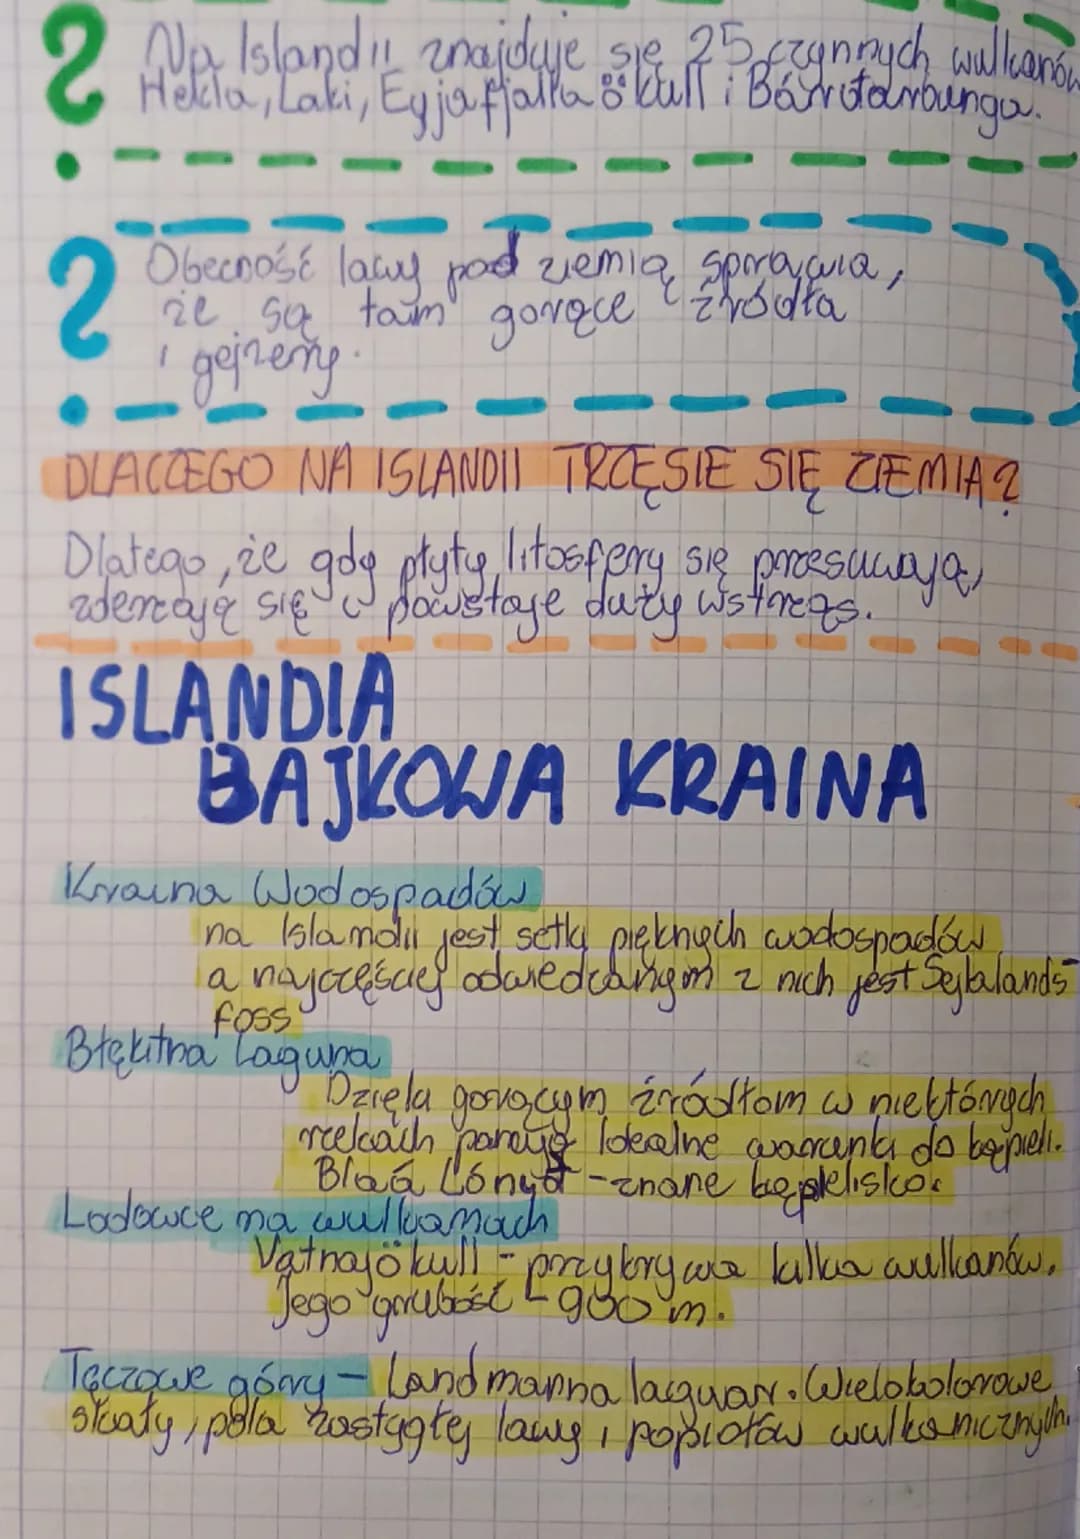 Na Islandii znajduje się 25 czynnych wulkanów
Hekla, Laki, Eyjafjalla ökull i Bárrotarbunga.
Obecność lawy pod ziemią sprawia,
że są tam gorące źródła
i gejzery.
DLACZEGO NA ISLANDII TRZĘSIE SIĘ ZIEMIA?
Dlatego, że gdy płyty litosfery się przesuwają,
zderzają się i powstaje duży wstrząs.
ISLANDIA
BAJKOWA KRAINA
Kraina Wodospadów
na Islandii jest setki pięknych wodospadów
a najczęściej odwiedzanym z nich jest Sejlalands-
foss
Błękitna Laguna
Dzięki gorącym źródłom w niektórych
rzekach panują idealne warunki do kąpieli.
Blaá Lónyd - znane kąpielisko.
Lodowce na wulkanach
Vatnajökull - przykrywa kilka wulkanów.
Jego grubość - 900 m.
Tęczowe góry - Landmanna laguar. Wielokolorowe
skały, pola zastygłej lawy i popiołów wulkanicznych.